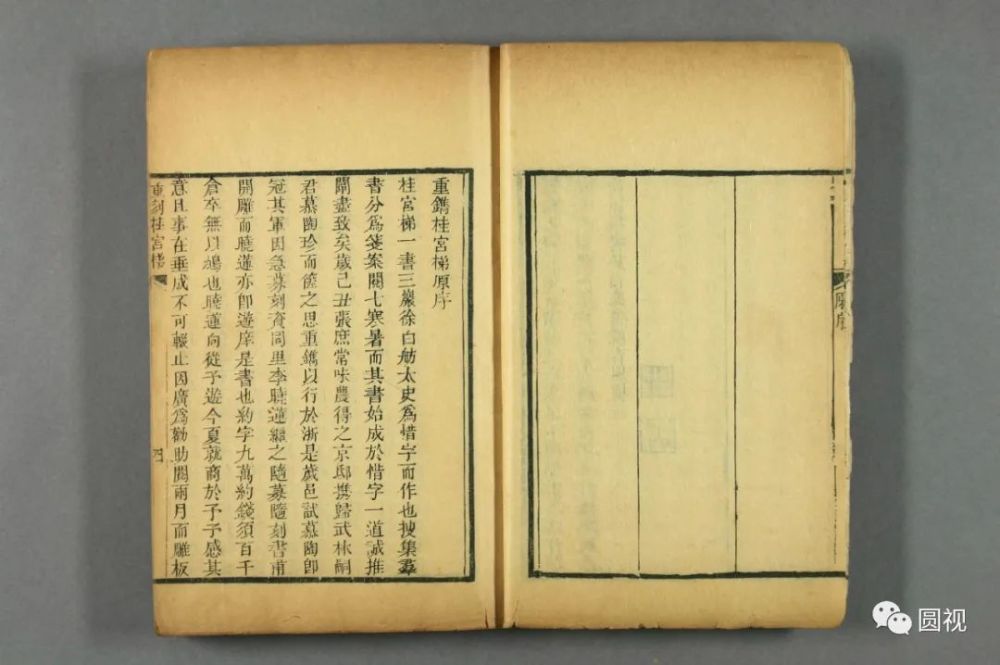 原序
重鐫桂宮梯原序
桂宮梯一書三巖徐白舫太史為惜字而作也搜集羣
書分為箋案閱七寒暑而其書始成於惜字一道誠推
闡盡致矣歲己丑張庶常味農得之京邸携歸武林嗣
君慕陶珍而篋之思重鐫以行於浙是歲邑試慕陶卽
冠其軍因急募刻資同里李曉蓮繼之隨募隨刻書甫
開雕而曉蓮亦卽遊庠是書也約字九萬約錢須百千
倉卒無以鳩也曉蓮向從予遊今夏就商於予予感其
意且事在垂成不可輟止因廣為勸助閱兩月而雕板
重刻桂宮梯
四
圆视